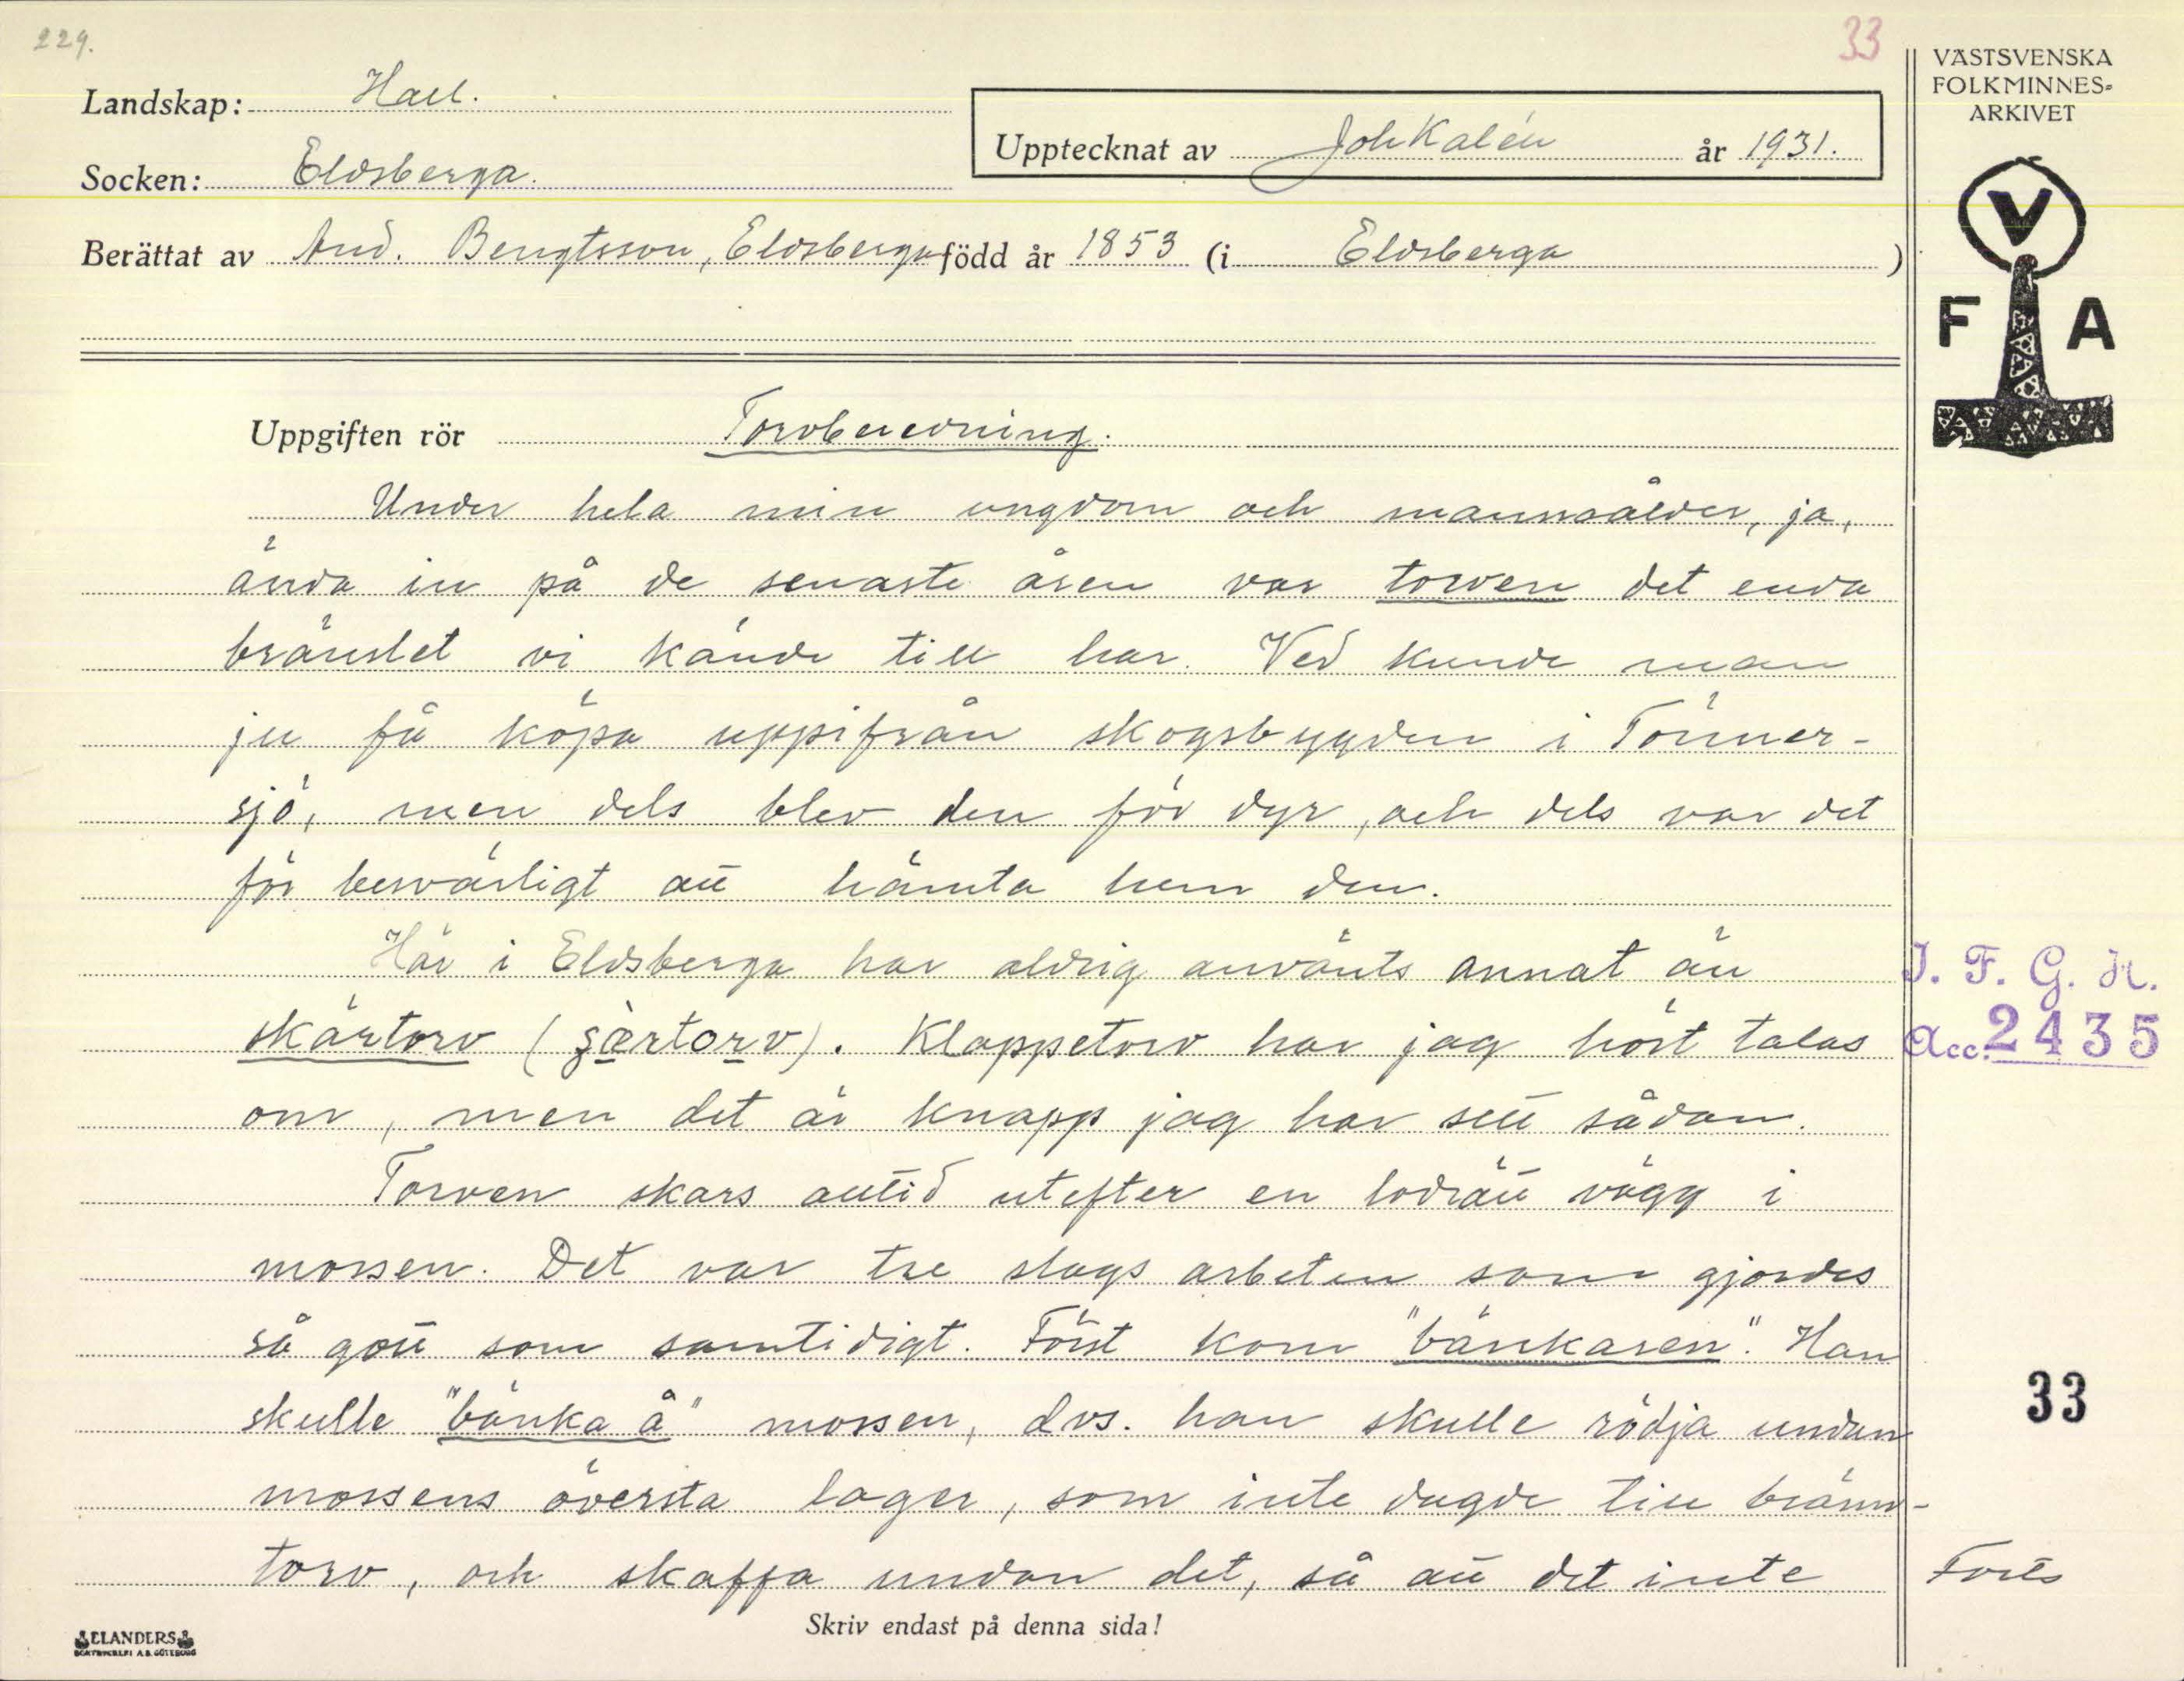 229.
33
VÄSTSVENSKA
FOLKMINNES-
ARKIVET
Landskap: Hall.
Upptecknat av Joh Kalén år 1931.
Socken: Eldsberga.
Berättat av And. Bengtsson, Eldsberga född år 1853 (i Eldsberga)
V
F A
Uppgiften rör Torvberedning.
Under hela min ungdom och mannsålder, ja,
ända in på de senaste åren var torven det enda
bränslet vi kände till här. Ved kunde man
ju få köpa uppifrån skogsbygden i Tönner-
sjö, men dels blev den för dyr, och dels var det
för besvärligt att hämta hem den.
Här i Eldsberga har aldrig använts annat än
skärtorv (ʂærtorv). Klappetorv har jag hört talas
om, men det är knapp jag har sett sådan.
Torven skars alltid utefter en lodrätt vägg i
mossen. Det var tre slags arbeten som gjordes
så gott som samtidigt. Först kom "bänkaren". Han
skulle "bänka å" mossen, dvs. han skulle rödja undan
mossens översta lager, som inte dugde till bränn-
torv, och skaffa undan det, så att det inte
I. F. G. H.
Acc. 2435
33
Forts
Skriv endast på denna sida!
ELANDERS
BOKTRYCKERI A.B. GÖTEBORG